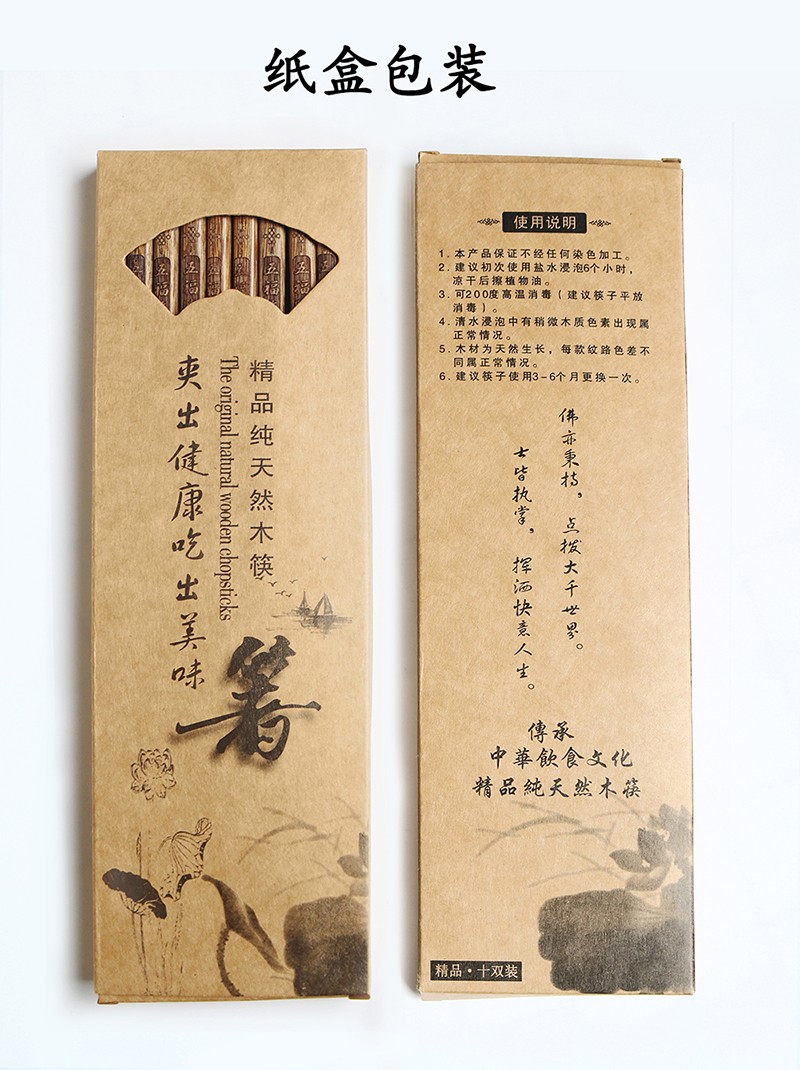 纸盒包装
五福
五福
五福
五福
精品纯天然木筷
The original natural wooden chopsticks
夹出健康吃出美味
箸
使用说明
1. 本产品保证不经任何染色加工。
2. 建议初次使用盐水浸泡6个小时，
凉干后擦植物油。
3. 可200度高温消毒（建议筷子平放
消毒）。
4. 清水浸泡中有稍微木质色素出现属
正常情况。
5. 木材为天然生长，每款纹路色差不
同属正常情况。
6. 建议筷子使用3-6个月更换一次。
佛亦秉持，点拨大千世界。
士皆执掌，挥洒快意人生。
傳承
中華飲食文化
精品純天然木筷
精品·十双装